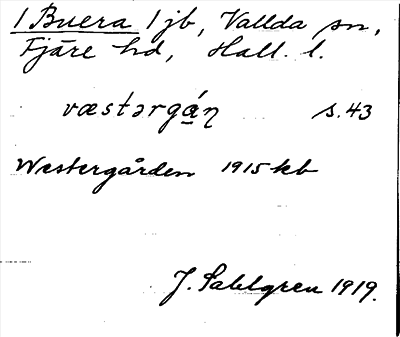 / Buera / jb, Vallda sn,
Fjäre hd, Hall. l.
væstərgά̲ŋ s. 43
Westergården 1915 kb
J. Sahlgren 1919.